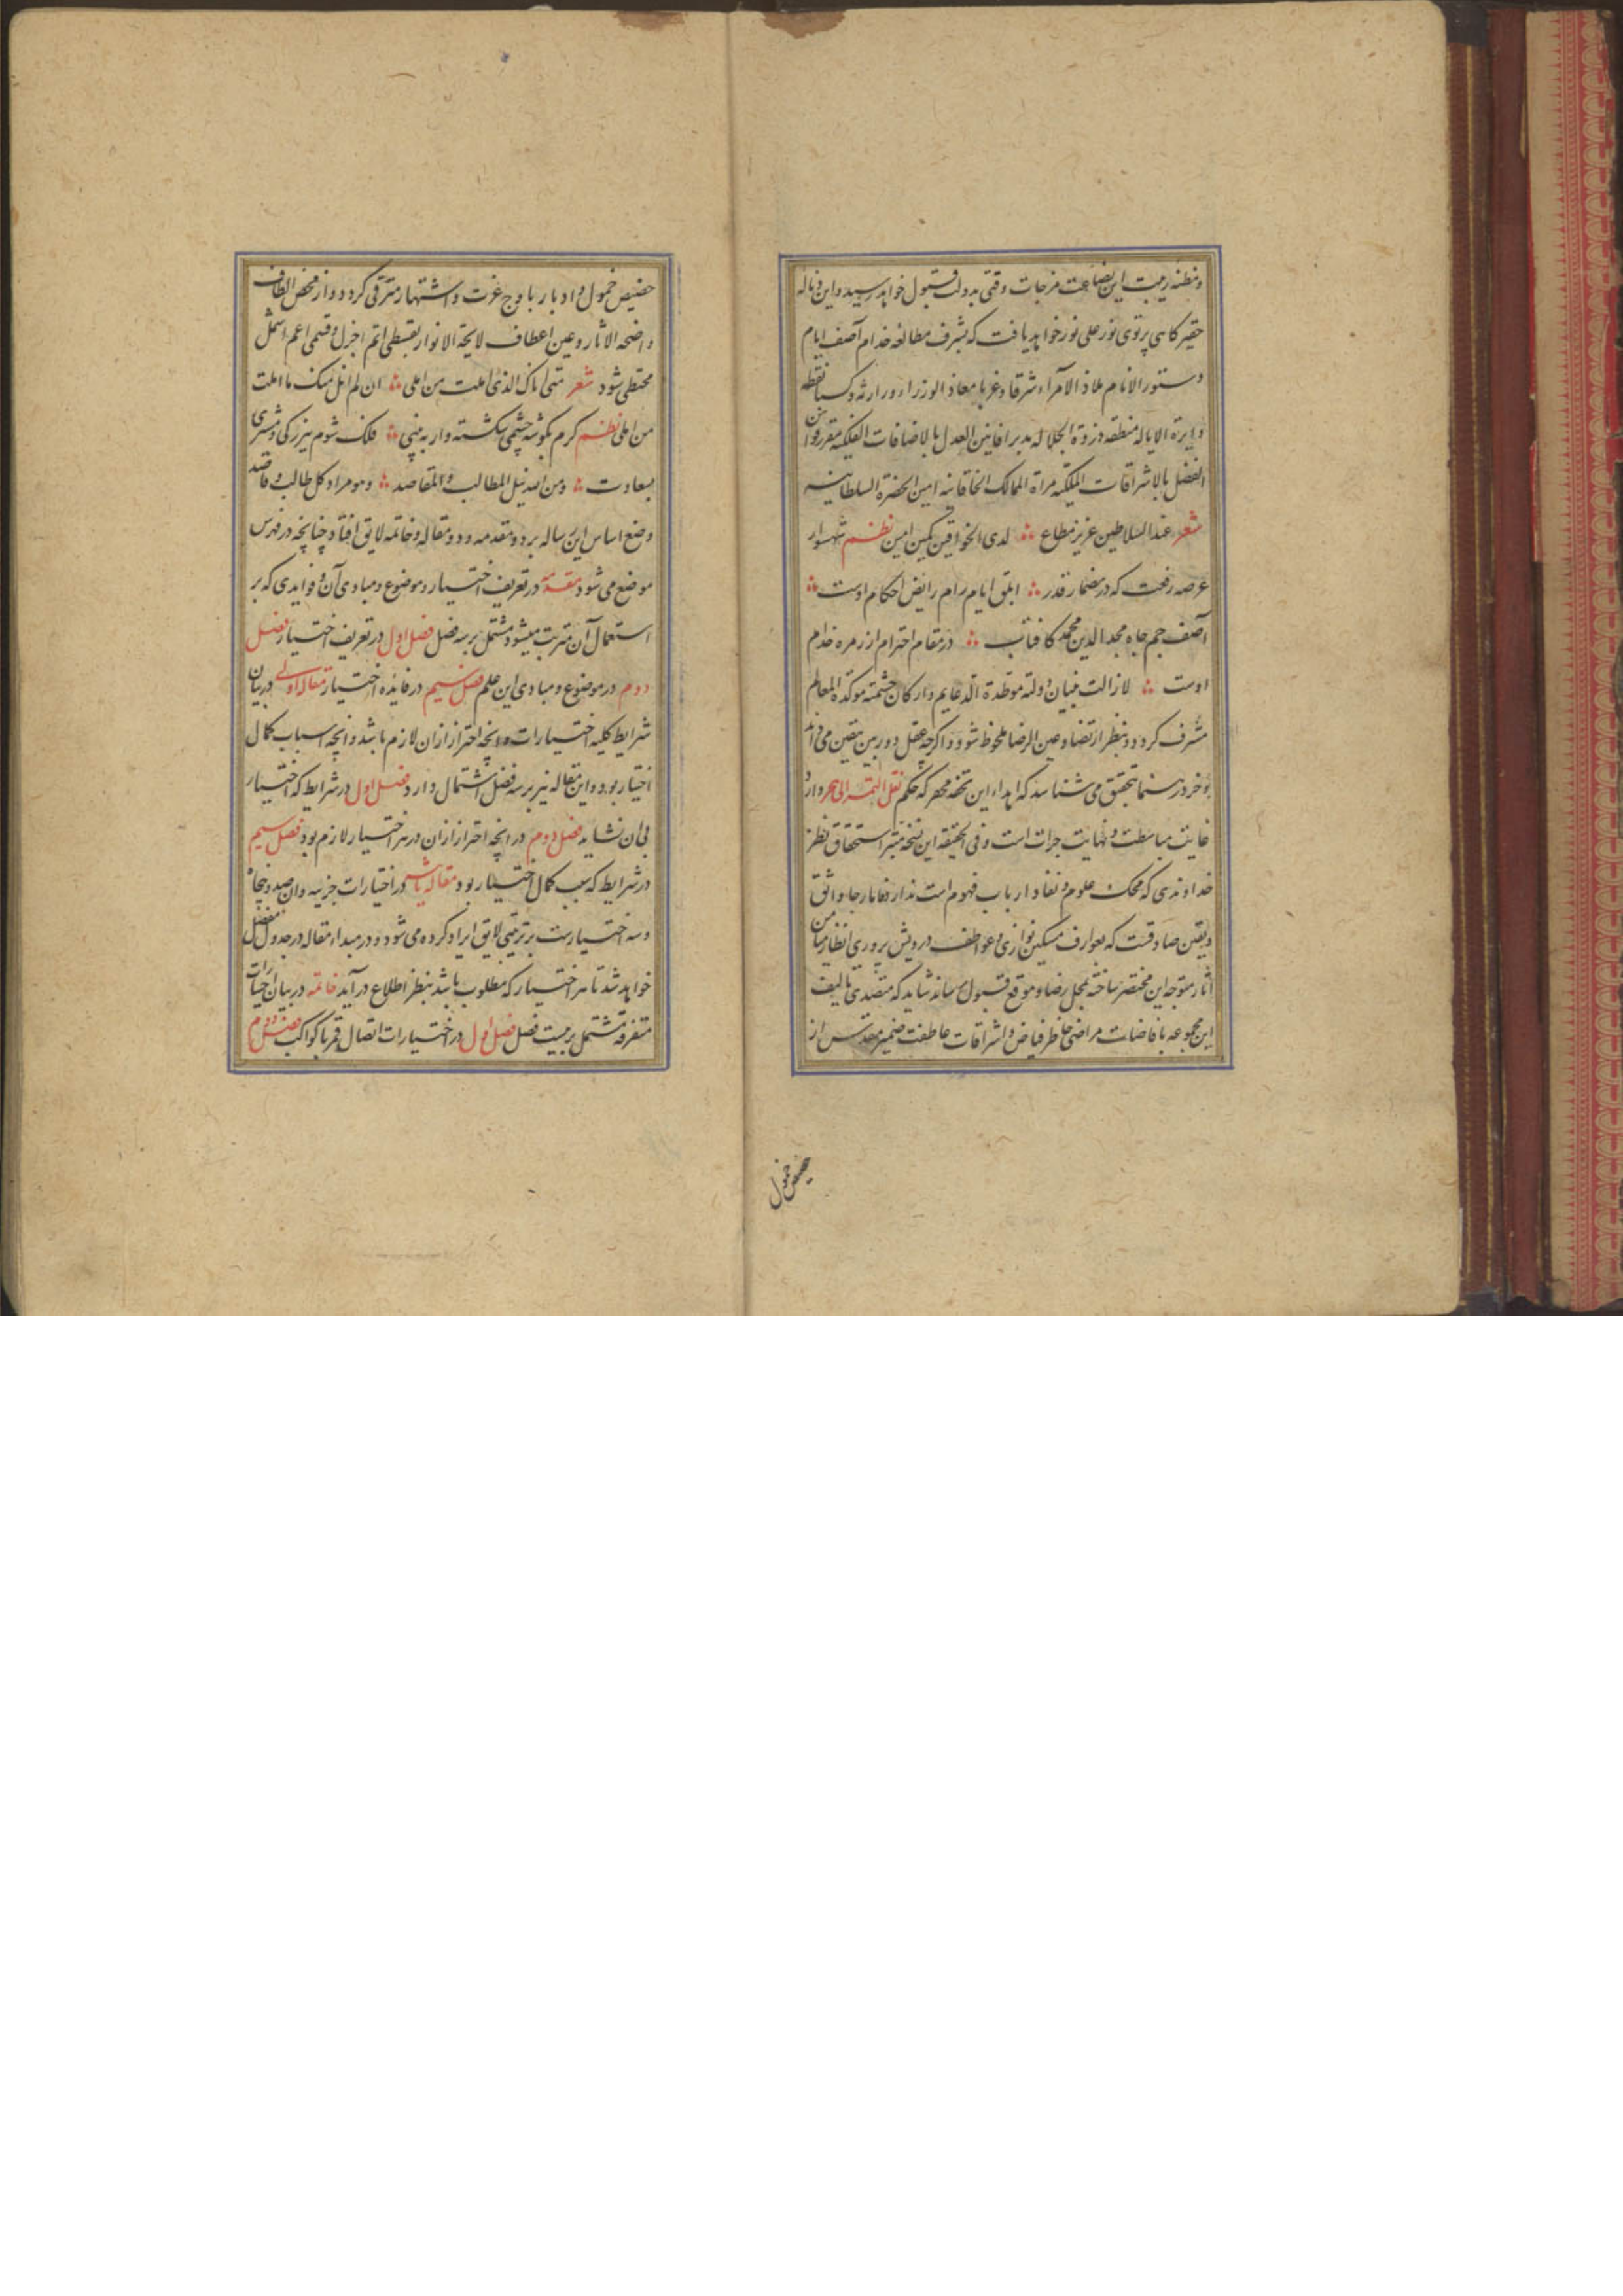 و مظنه ریبت این بضاعت مزجات وقتی بدولت قبول خواهد رسید و این ذباله
حقیر گاهی پرتوی نور علی نور خواهد یافت که بشرف مطالعه خدام آصف ایام
دستور الانام ملاذ الامراء شرقا و غربا معاذ الوزراء ورارثه و کسبا نقطه
دایرة الایاله منطقه ذروة الجلاله مدبر افانین العدل بالاضافات الفلکیه مقرر قوانین
الفضل بالاشراقات الملکیه مرآة الممالک الخاقانیه امین الحضرة السلطانیه
شعر عند السلاطین عزیز مطاع لدی الخواقین مکین امین نظم شهسوار
عرصه رفعت که در مضمار قدر ابلق ایام رام رایض احکام اوست
آصف جم جاه مجد الدین محمد کافتاب در مقام احترام از زمره خدام
اوست لازالت بنیان دولته موطدة الدعایم و ارکان حشمته موکدة المعالم
مشرف گردد و بنظر ارتضا و عین الرضا ملحوظ شود و اگرچه عقل دوربین بیقین می داند
و خرد رهنما بتحقیق می شناسد که اهداء این تحفه محقر که حکم نقل التمر الی هجر دارد
غایت مباسطت و نهایت جرات است و فی الحقیقه این نسخه مبتر استحقاق نظر
خداوندی که محک علوم و نقاد ارباب فهوم است ندارد فاما رجا واثق
و یقین صادقست که بعوارف مسکین نوازی و عواطف درویش پروری انظار میامن
آثار متوجه این مختصر ساخته بمحل رضا و موقع قبول رساند شاید که متصدی تالیف
این مجموعه بافاضات مراضی خاطر فیاض و اشراقات عاطفت ضمیر مقدس از
حضیض خمول
حضیض خمول و ادبار باوج عزت و اشتهار مترقی گردد و از محض الطاف
واضحة الاثار و عین اعطاف لایحة الانوار بقسطی اتم اجزل و قسمی اعم اشمل
محتظی شود شعر متی اناک الذی املت من املی ان لم انل منک ما املت
من املی نظم کرم بگوشه چشمی شکسته وار به بینی فلک شوم ببزرگی و مشتری
بسعادت و من الله نیل المطالب و المقاصد و هو مراد کل طالب و قاصد
وضع اساس این رساله بر دو مقدمه و دو مقاله و خاتمه لایق افتاد چنانچه در فهرس
موضع می شود مقدمه در تعریف اختیار و موضوع و مبادی آن و فوایدی که بر
استعمال آن مترتب میشود مشتمل بر سه فصل فصل اول در تعریف اختیار فصل
دوم در موضوع و مبادی این علم فصل سیم در فایده اختیار مقاله اولی در بیان
شرایط کلیه اختیارات و انچه احتراز ازان لازم باشد و انچه اسباب کمال
اختیار بود و این مقاله نیز بر سه فصل اشتمال دارد فصل اول در شرایط که اختیار
بی ان نشاید فصل دوم در انچه احتراز ازان در هر اختیار لازم بود فصل سیم
در شرایط که سبب کمال اختیار بود مقاله ثانیه در اختیارات جزییه و ان صد و پنجاه
و سه اختیارست بر ترتیبی لایق ایراد کرده می شود و در مبداء مقاله در جدول مفصل
خواهد شد تا هر اختیار که مطلوب باشد بنظر اطلاع در آید خاتمه در بیان اختیارات
متفرقه مشتمل بر بیست فصل فصل اول در اختیارات اتصال قمر با کواکب فصل دوم